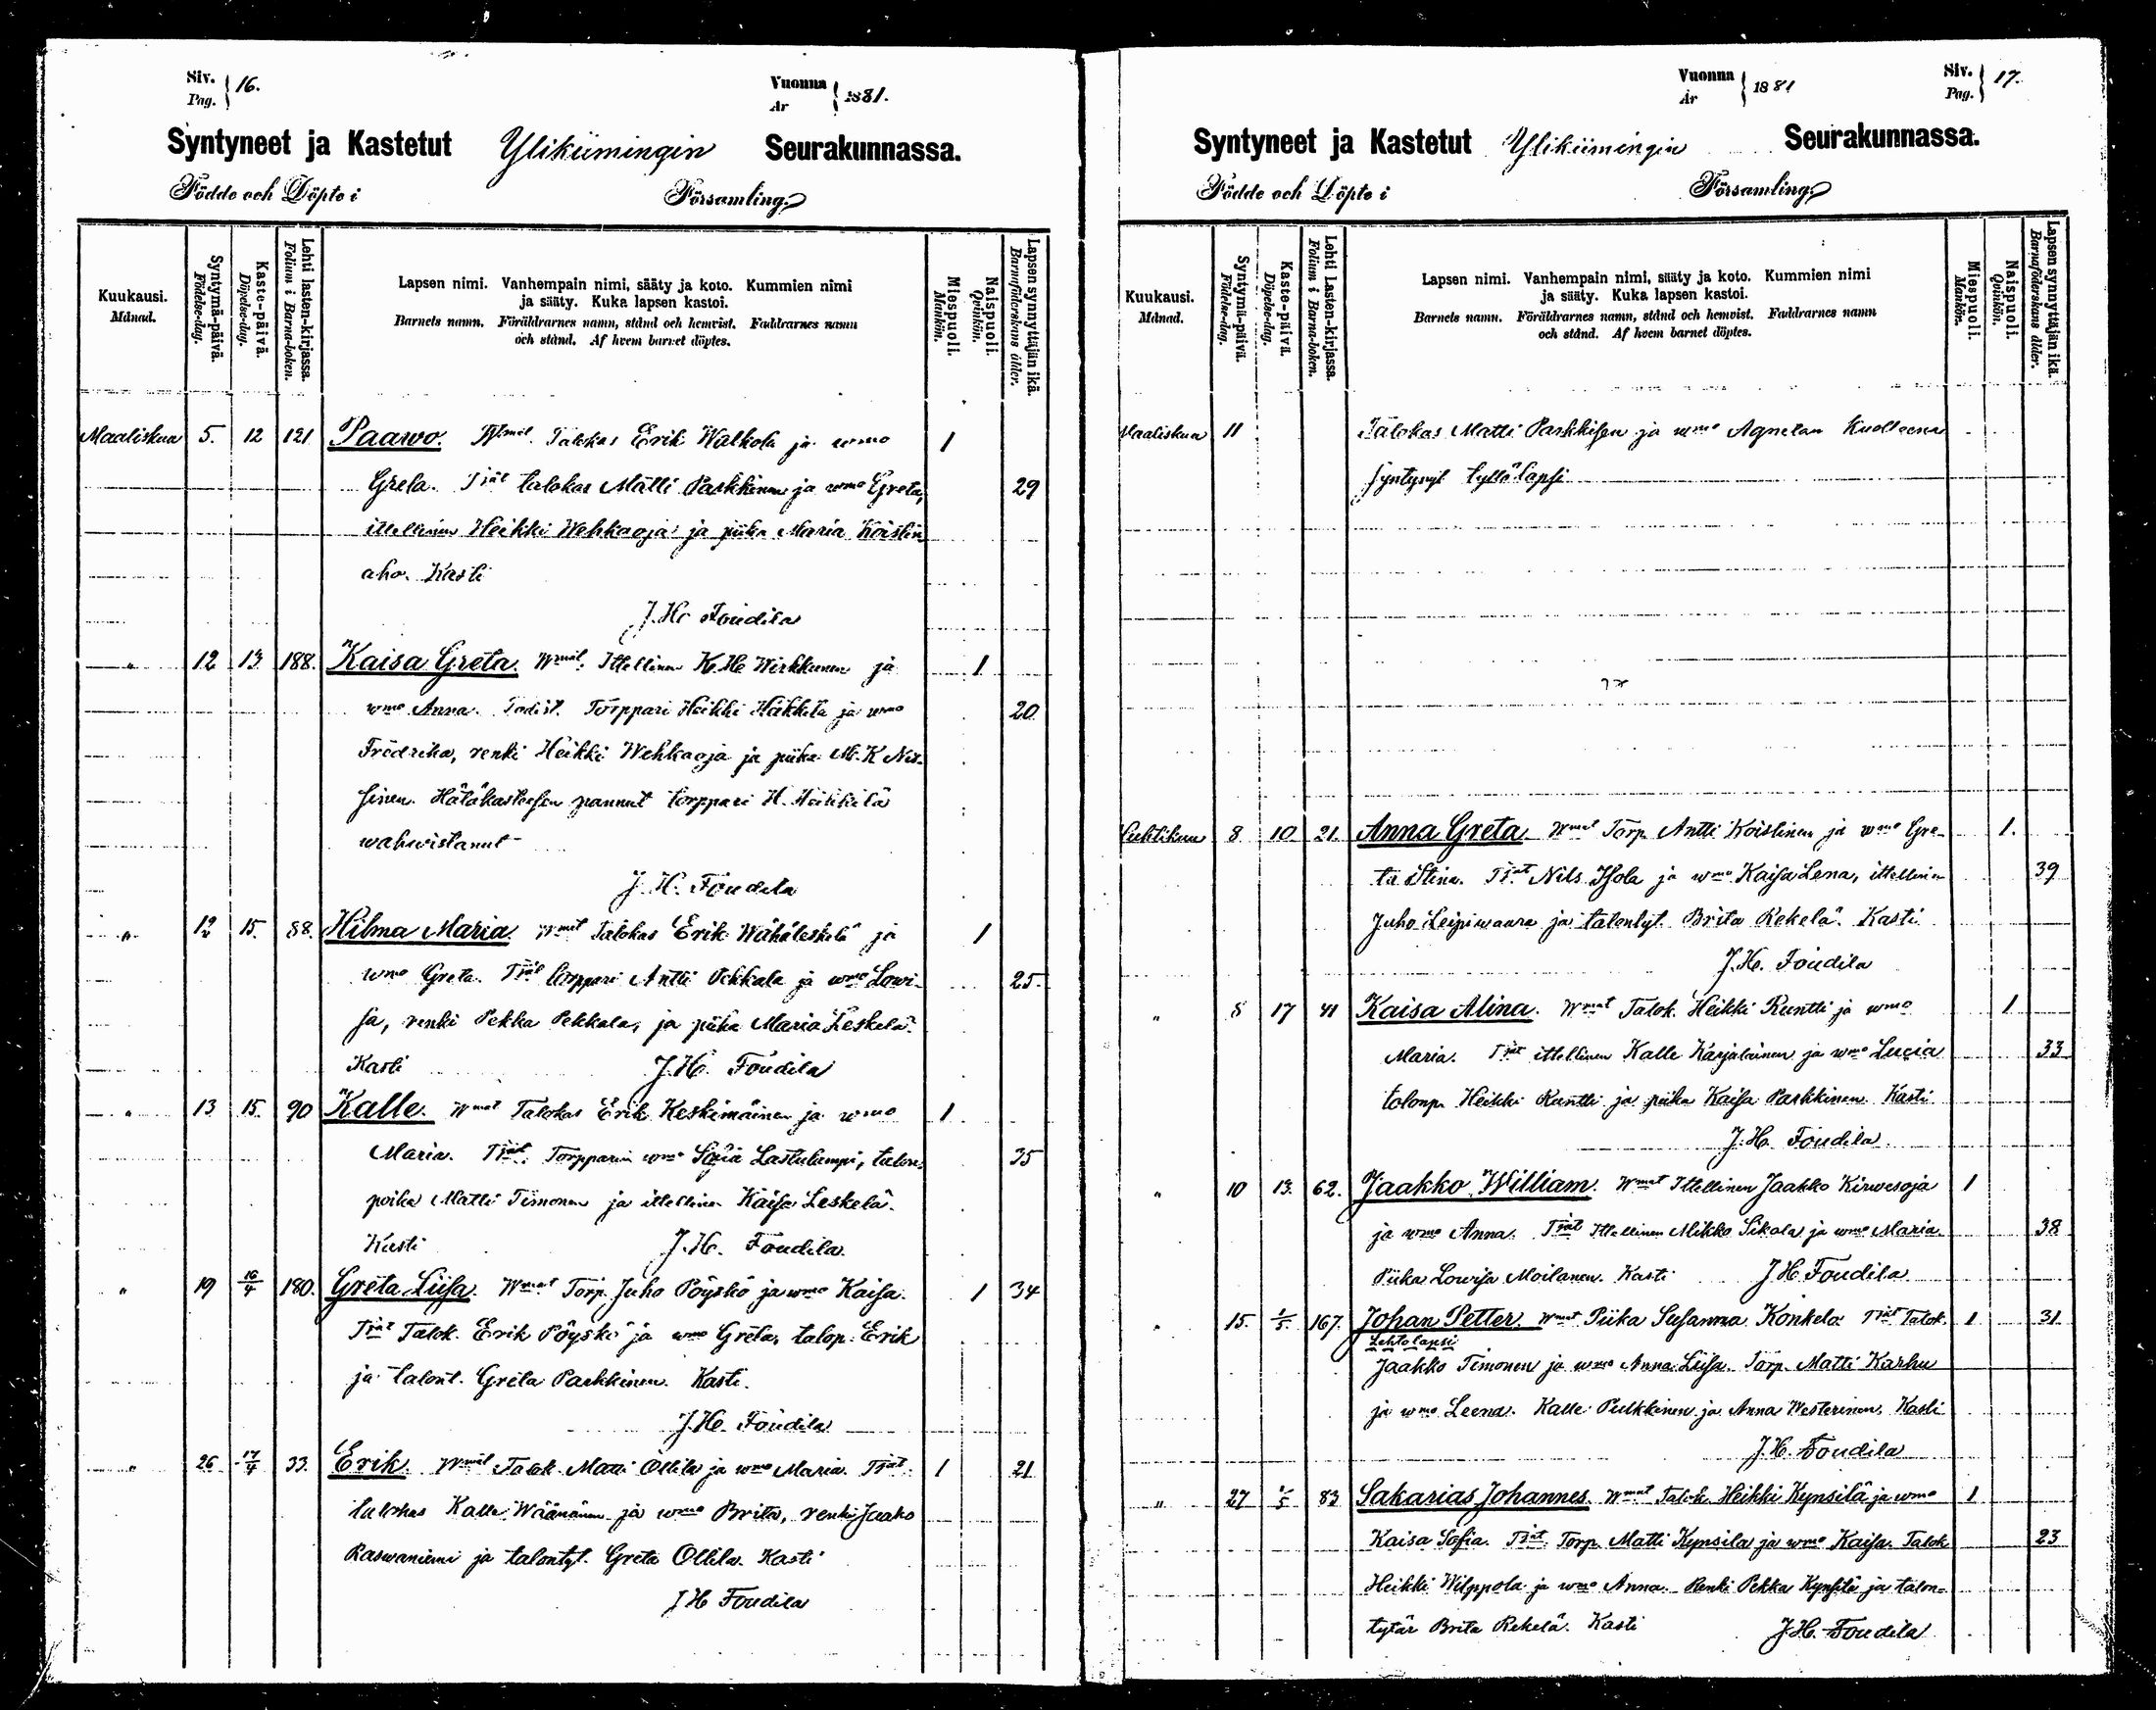 Siv.
Pag. } 16.
Vuonna
År } 1881.
Syntyneet ja Kastetut Ylikiimingin Seurakunnassa.
Födde och Döpte i Församling.
Kuukausi.
Månad.
Syntymä-päivä.
Födelse-dag.
Kaste-päivä.
Döpelse-dag.
Lehti lasten-kirjassa.
Folium i Barna-boken.
Lapsen nimi. Vanhempain nimi, sääty ja koto. Kummien nimi
ja sääty. Kuka lapsen kastoi.
Barnets namn. Föräldrarnes namn, stånd och hemvist. Faddrarnes namn
och stånd. Af hvem barnet döptes.
Miespuoli.
Mankön.
Naispuoli.
Qvinkön.
Lapsen synnyttäjän ikä.
Barnaföderskans ålder.
Maaliskuu 5. 12 121 Paawo. Wmat. Talokas Erik Walkola ja wmo 1
Greta. Tjät talokas Matti Parkkinen ja wmo Greta, 29
ittellinen Heikki Wehkaoja ja piika Maria Koistin
aho. Kasti
J. H. Foudila
" 12 13 188. Kaisa Greta. Wmat. Ittellinen K. H. Wirkkunen ja 1
wmo Anna. Todist. Torppari Heikki Heikkilä ja wmo 20
Fredrika, renki Heikki Wehkaoja ja piika M. K Nis-
sinen. Hätäkasteesen pannut torppari H. Heikkilä
wahwistanut
J. H. Foudila
" 12 15. 88. Hilma Maria. Wmat Talokas Erik Wähäleskelä ja 1
wmo Greta. Tjät torppari Antti Pekkala ja wmo Lowi- 25.
sa, renki Pekka Pekkala, ja piika Maria Leskelä.
Kasti J. H. Foudila
" 13 15. 90 Kalle. Wmat Talokas Erik Keskimäinen ja wmo 1
Maria. Tjät. Torpparin wmo Lastulumpi, talon 35
poika Matti Timonen ja ittellinen Kaisa Leskelä.
Kasti J. H. Foudila.
" 19 16/4 180. Greta Liisa. Wmat Torp. Juho Pöyskö ja wmo Kaisa. 1 34
Tjät Talok. Erik Pöyskö ja wmo Greta, talop. Erik
ja talont. Greta Parkkinen. Kasti.
J. H. Foudila
" 26 17/4 33. Erik. Wmat Talok Matti Ollila ja wmo Maria. Tjät. 1 21
talokas Kalle Wäänänen ja wmo Brita, renki Jaako
Raswaniemi ja talontyt. Greta Ollila. Kasti
J H Foudila
Vuonna
År } 1881
Siv.
Pag. } 17.
Syntyneet ja Kastetut Ylikiimingin Seurakunnassa.
Födde och Döpte i Församling.
Kuukausi.
Månad.
Syntymä-päivä.
Födelse-dag.
Kaste-päivä.
Döpelse-dag.
Lehti Lasten-kirjassa.
Folium i Barna-boken.
Lapsen nimi. Vanhempain nimi, sääty ja koto. Kummien nimi
ja sääty. Kuka lapsen kastoi.
Barnets namn. Föräldrarnes namn, stånd och hemvist. Faddrarnes namn
och stånd. Af hvem barnet döptes.
Miespuoli.
Mankön.
Naispuoli.
Qvinkön.
Lapsen synnyttäjän ikä.
Barnaföderskans ålder.
Maaliskuu 11 Talokas Matti Parkkisen ja wmo Agnetan kuolleena
syntynyt tyttölapsi
Huhtikuu 8. 10. 21. Anna Greta. Wmat Torp. Antti Koistinen ja wmo Gre- 1.
ta Stina. Tjät Nils Isola ja wmo Kaisa Lena, ittellinen 39
Juho Leipiwaara ja talontyt. Brita Rekelä. Kasti
J. H. Foudila
" 8 17 41 Kaisa Alina. Wmat Talok. Heikki Runtti ja wmo 1
Maria. Tjät ittellinen Kalle Karjalainen ja wmo Lucia 33
talonp. Heikki Runtti ja piika Kaisa Parkkinen. Kasti
J. H. Foudila
" 10 13. 62. Jaakko William. Wmat Ittellinen Jaakko Kirwesoja 1
ja wmo Anna. Tjät Ittellinen Mikko Sikala ja wmo Maria. 38
Piika Lowisa Moilanen. Kasti J H Foudila
" 15. 1/5 167. Johan Petter. Wmat Piika Susanna Konkela. Tjät Talok. 1 31.
Lehtolapsi
Jaakko Timonen ja wmo Anna Liisa. Torp. Matti Karhu
ja wmo Leena. Kalle Pulkkinen ja Anna Westerinen. Kasti
J. H. Foudila
" 27 1/5 83 Sakarias Johannes. Wmat Talok. Heikki Kynsilä ja wmo 1
Kaisa Sofia. Tjät. Torp. Matti Kynsilä ja wmo Kaisa. Talok 23
Heikki Wilppola ja wmo Anna. Renki Pekka Kynsilä ja talon-
tytär Brita Rekelä. Kasti J. H. Foudila